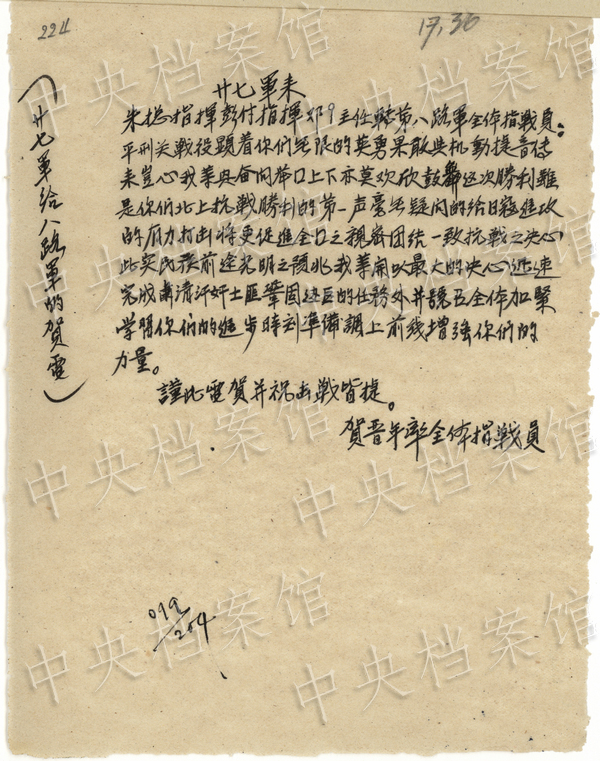 224
17,36
(廿七軍给八路軍的賀電)
廿七軍耒
朱总指揮彭付指揮 主任轉第八路軍全体指戰員:
平刑关戰役顕着你们无限的英勇果敢与机動捷音传
耒豈心我等与全同带口上下亦莫欢欣鼓舞这次勝利雖
是你们北上抗戰勝利的第一声毫无疑问的给日寇進攻
的有力打击将更促進全口之親密团结一致抗戰之决心
此实民族前途光明之預兆我等闻以最大的决心迅速
完成肅清汗奸土匪鞏固边区的任務外并 全体加緊
学習你们的進步時刻準備調上前线增強你们的
力量。
謹此電賀并祝击戰皆捷。
賀晋年率全体指戰員
019/204
中央档案馆